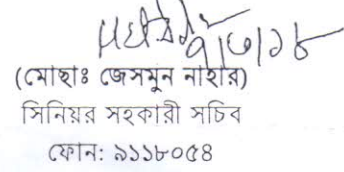 ৭/৩/১৮
(মোছাঃ জেসমুন নাহার)
সিনিয়র সহকারী সচিব
ফোন: ৯১১৮০৫৪